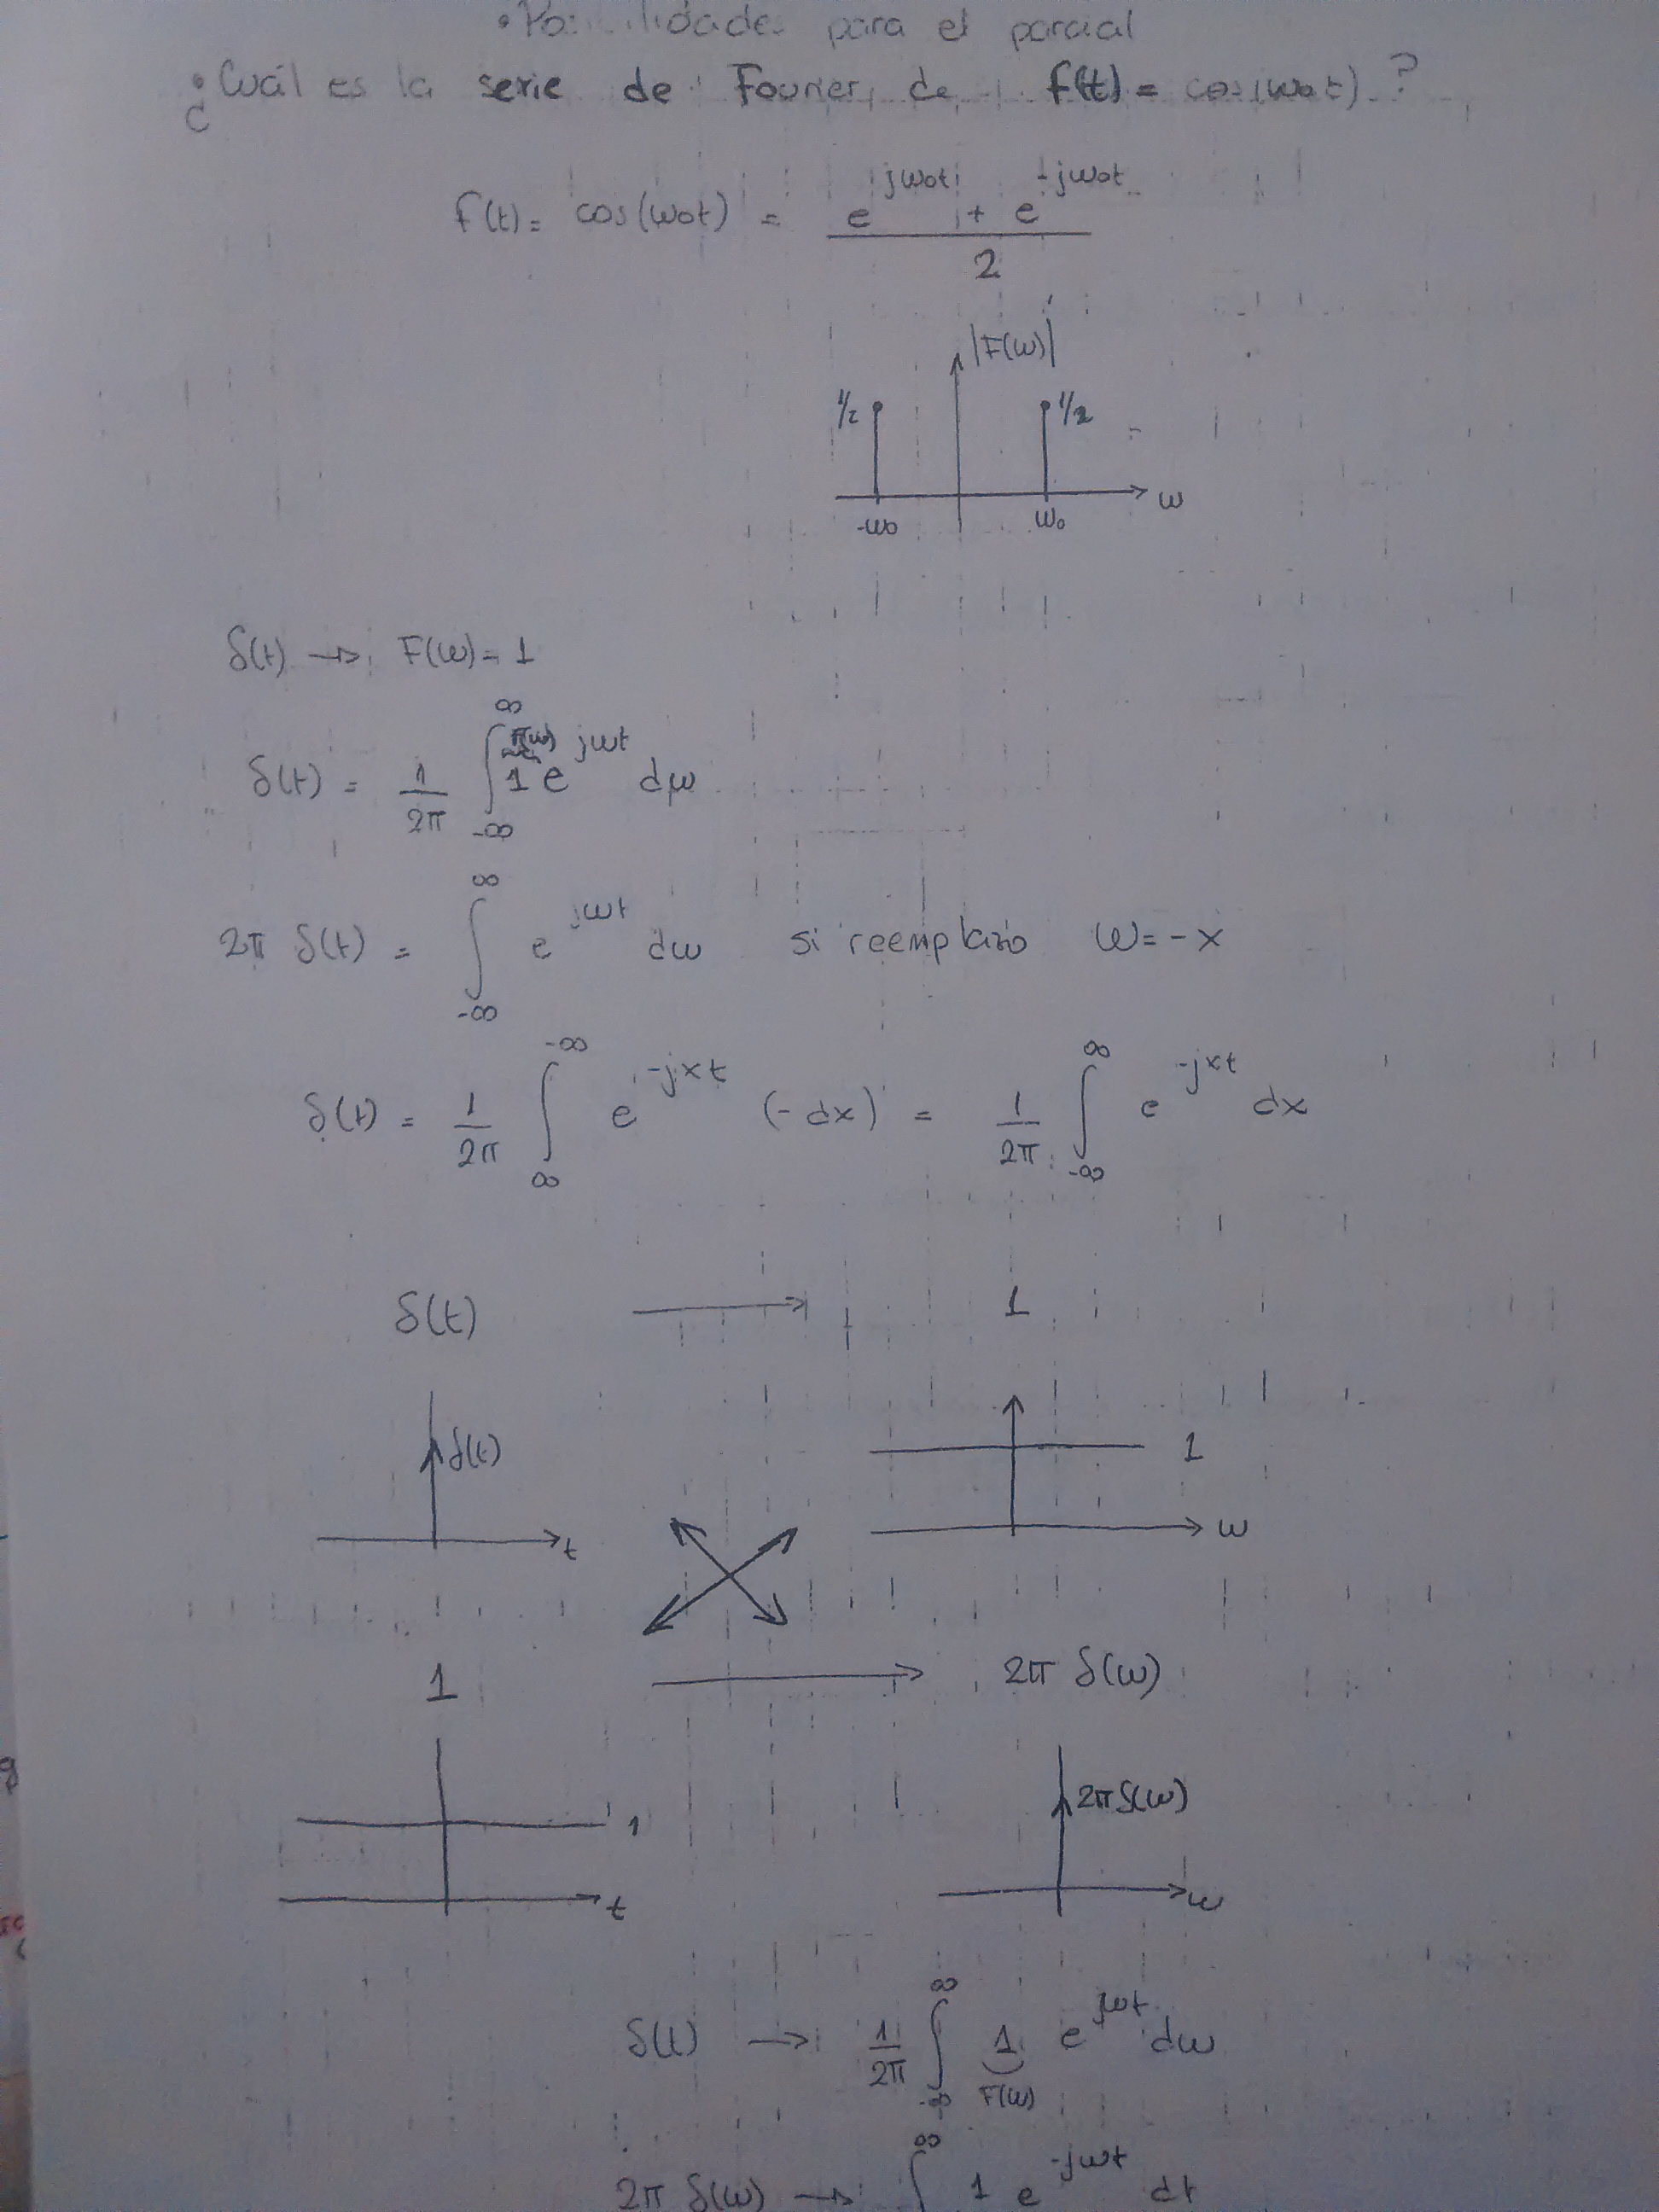 • Posibilidades para el parcial
¿Cuál es la serie de Fourier de f(t) = cos(ωot) ?
f(t) = cos(ωot) = (e^{jωot} + e^{-jωot}) / 2
|F(ω)|
1/2 1/2
-ωo ωo ω
δ(t) → F(ω) = 1
δ(t) = 1/2π ∫_{-∞}^{∞} 1 e^{jωt} dω
F(ω)
2π δ(t) = ∫_{-∞}^{∞} e^{jωt} dω si reemplazo ω = -x
δ(t) = 1/2π ∫_{∞}^{-∞} e^{-jxt} (-dx) = 1/2π ∫_{-∞}^{∞} e^{-jxt} dx
δ(t) → 1
δ(t) 1
t ω
1 → 2π δ(ω)
1 2πδ(ω)
t ω
δ(t) → 1/2π ∫_{-∞}^{∞} 1 e^{jωt} dω
F(ω)
2π δ(ω) → ∫^{∞} 1 e^{-jωt} dt